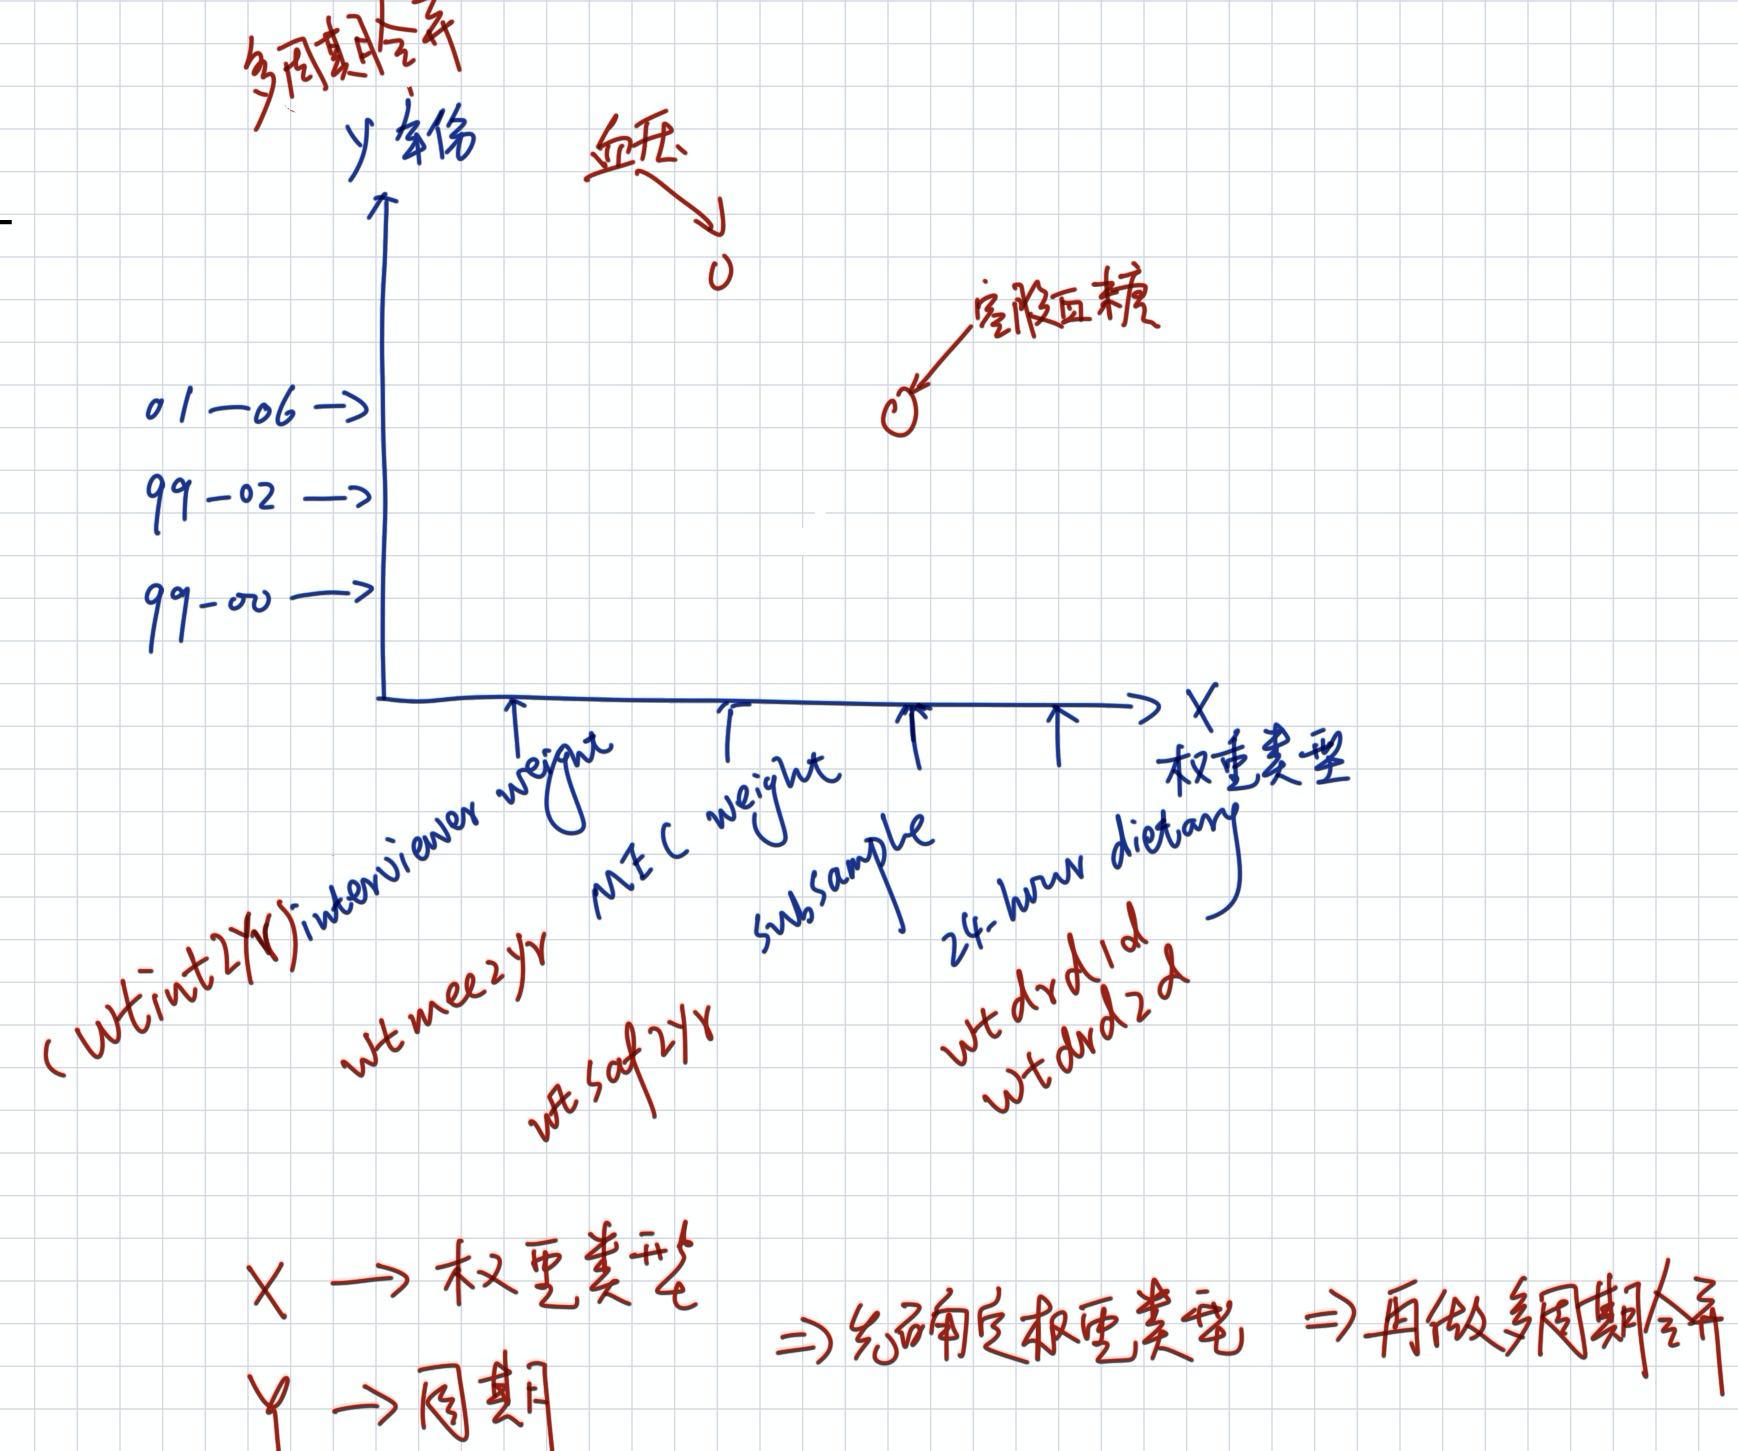 多周期合并
y 年份
血压
空腹血糖
01-06
99-02
99-00
X
权重类型
interviewer weight
(wtint2yr)
MEC weight
wtmee2yr
subsample
wtsaf2yr
24-hour dietary
wtdrd1d
wtdrd2d
X → 权重类型
Y → 周期
⇒ 先确定权重类型 ⇒ 再做多周期合并